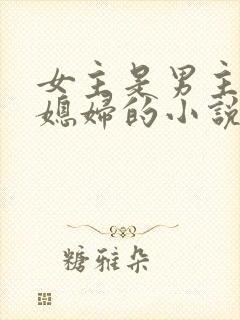 女主是男主
媳婦的小說
糖雅朵